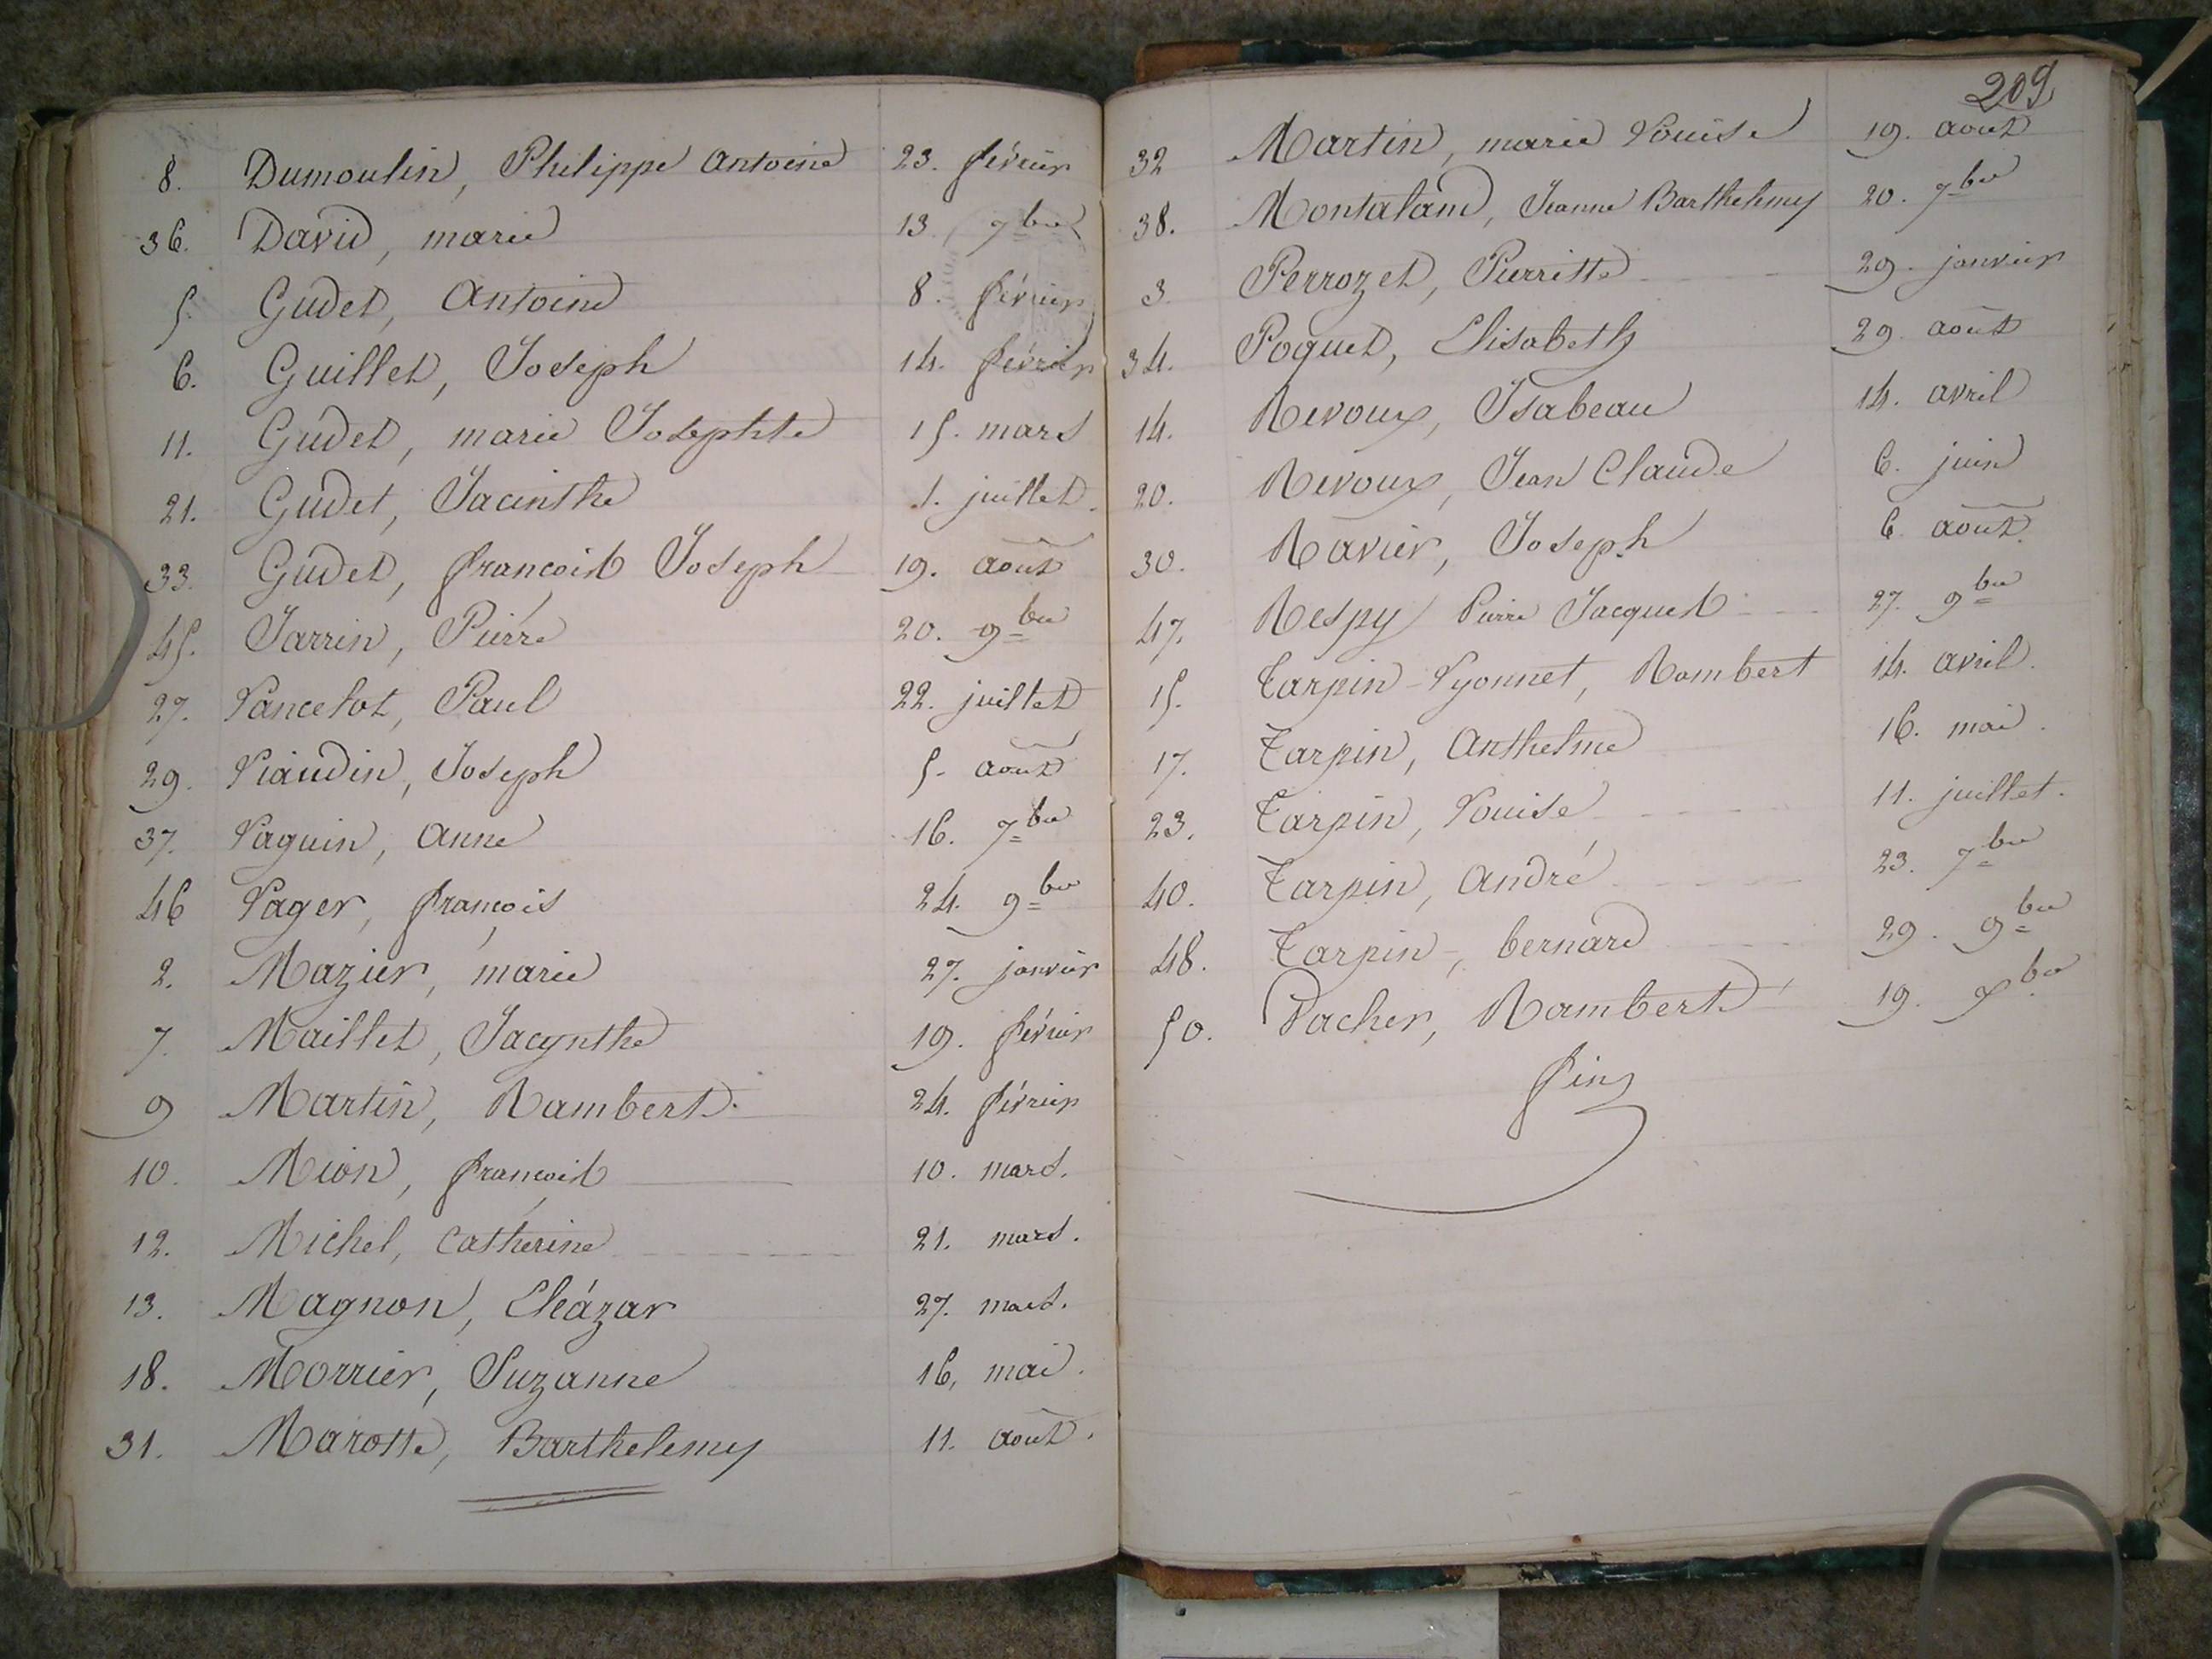 8. Dumoulin, Philippe Antoine 23. février
36. David, marie 13. 7bre
5. Gudet, Antoine 8. février
6. Guillet, Joseph 14. février
11. Gudet, marie Josephte 15. mars
21. Gudet, Jacinthe 1. juillet.
33. Gudet, francois Joseph 19. août
45. Jarrin, Piérre 20. 9bre
27. Lancelot, Paul 22. juillet
29. Liaudin, Joseph 5. août
37. Laguin, Anne 16. 7bre
46 Lager, françois 24. 9bre
2. Mazier, marie 27. janvier
7. Maillet, Jacynthe 19. février
9 Martin, Rambert. 24. février
10. Mion, françois 10. mars.
12. Michel, Catherine 21. mars.
13. Magnon, Eléázar 27. mars.
18. Morrier, Suzanne 16, mai.
31. Marotte, Barthelemy 11. août.
209
32 Martin, marie Louise 19. août
38. Montaland, Jeanne Barthelemy 20. 7bre
3. Perrozet, Pierrette 29. janvier
34. Poquet, Elisabeth 29. août
14. Revoux, Isabeau 14. avril
20. Revoux, Jean Claude 6. juin
30. Ravier, Joseph 6 août.
47. Respy Pierre Jacques 27. 9bre
15. Tarpin-Lyonnet, Rambert 14. avril.
17. Tarpin, Anthelme 16. mai.
23. Tarpin, Louise 11. juillet.
40. Tarpin, André 23. 7bre
48. Tarpin, bernard 29. 9bre
50. Vacher, Rambert 19. Xbre
fin